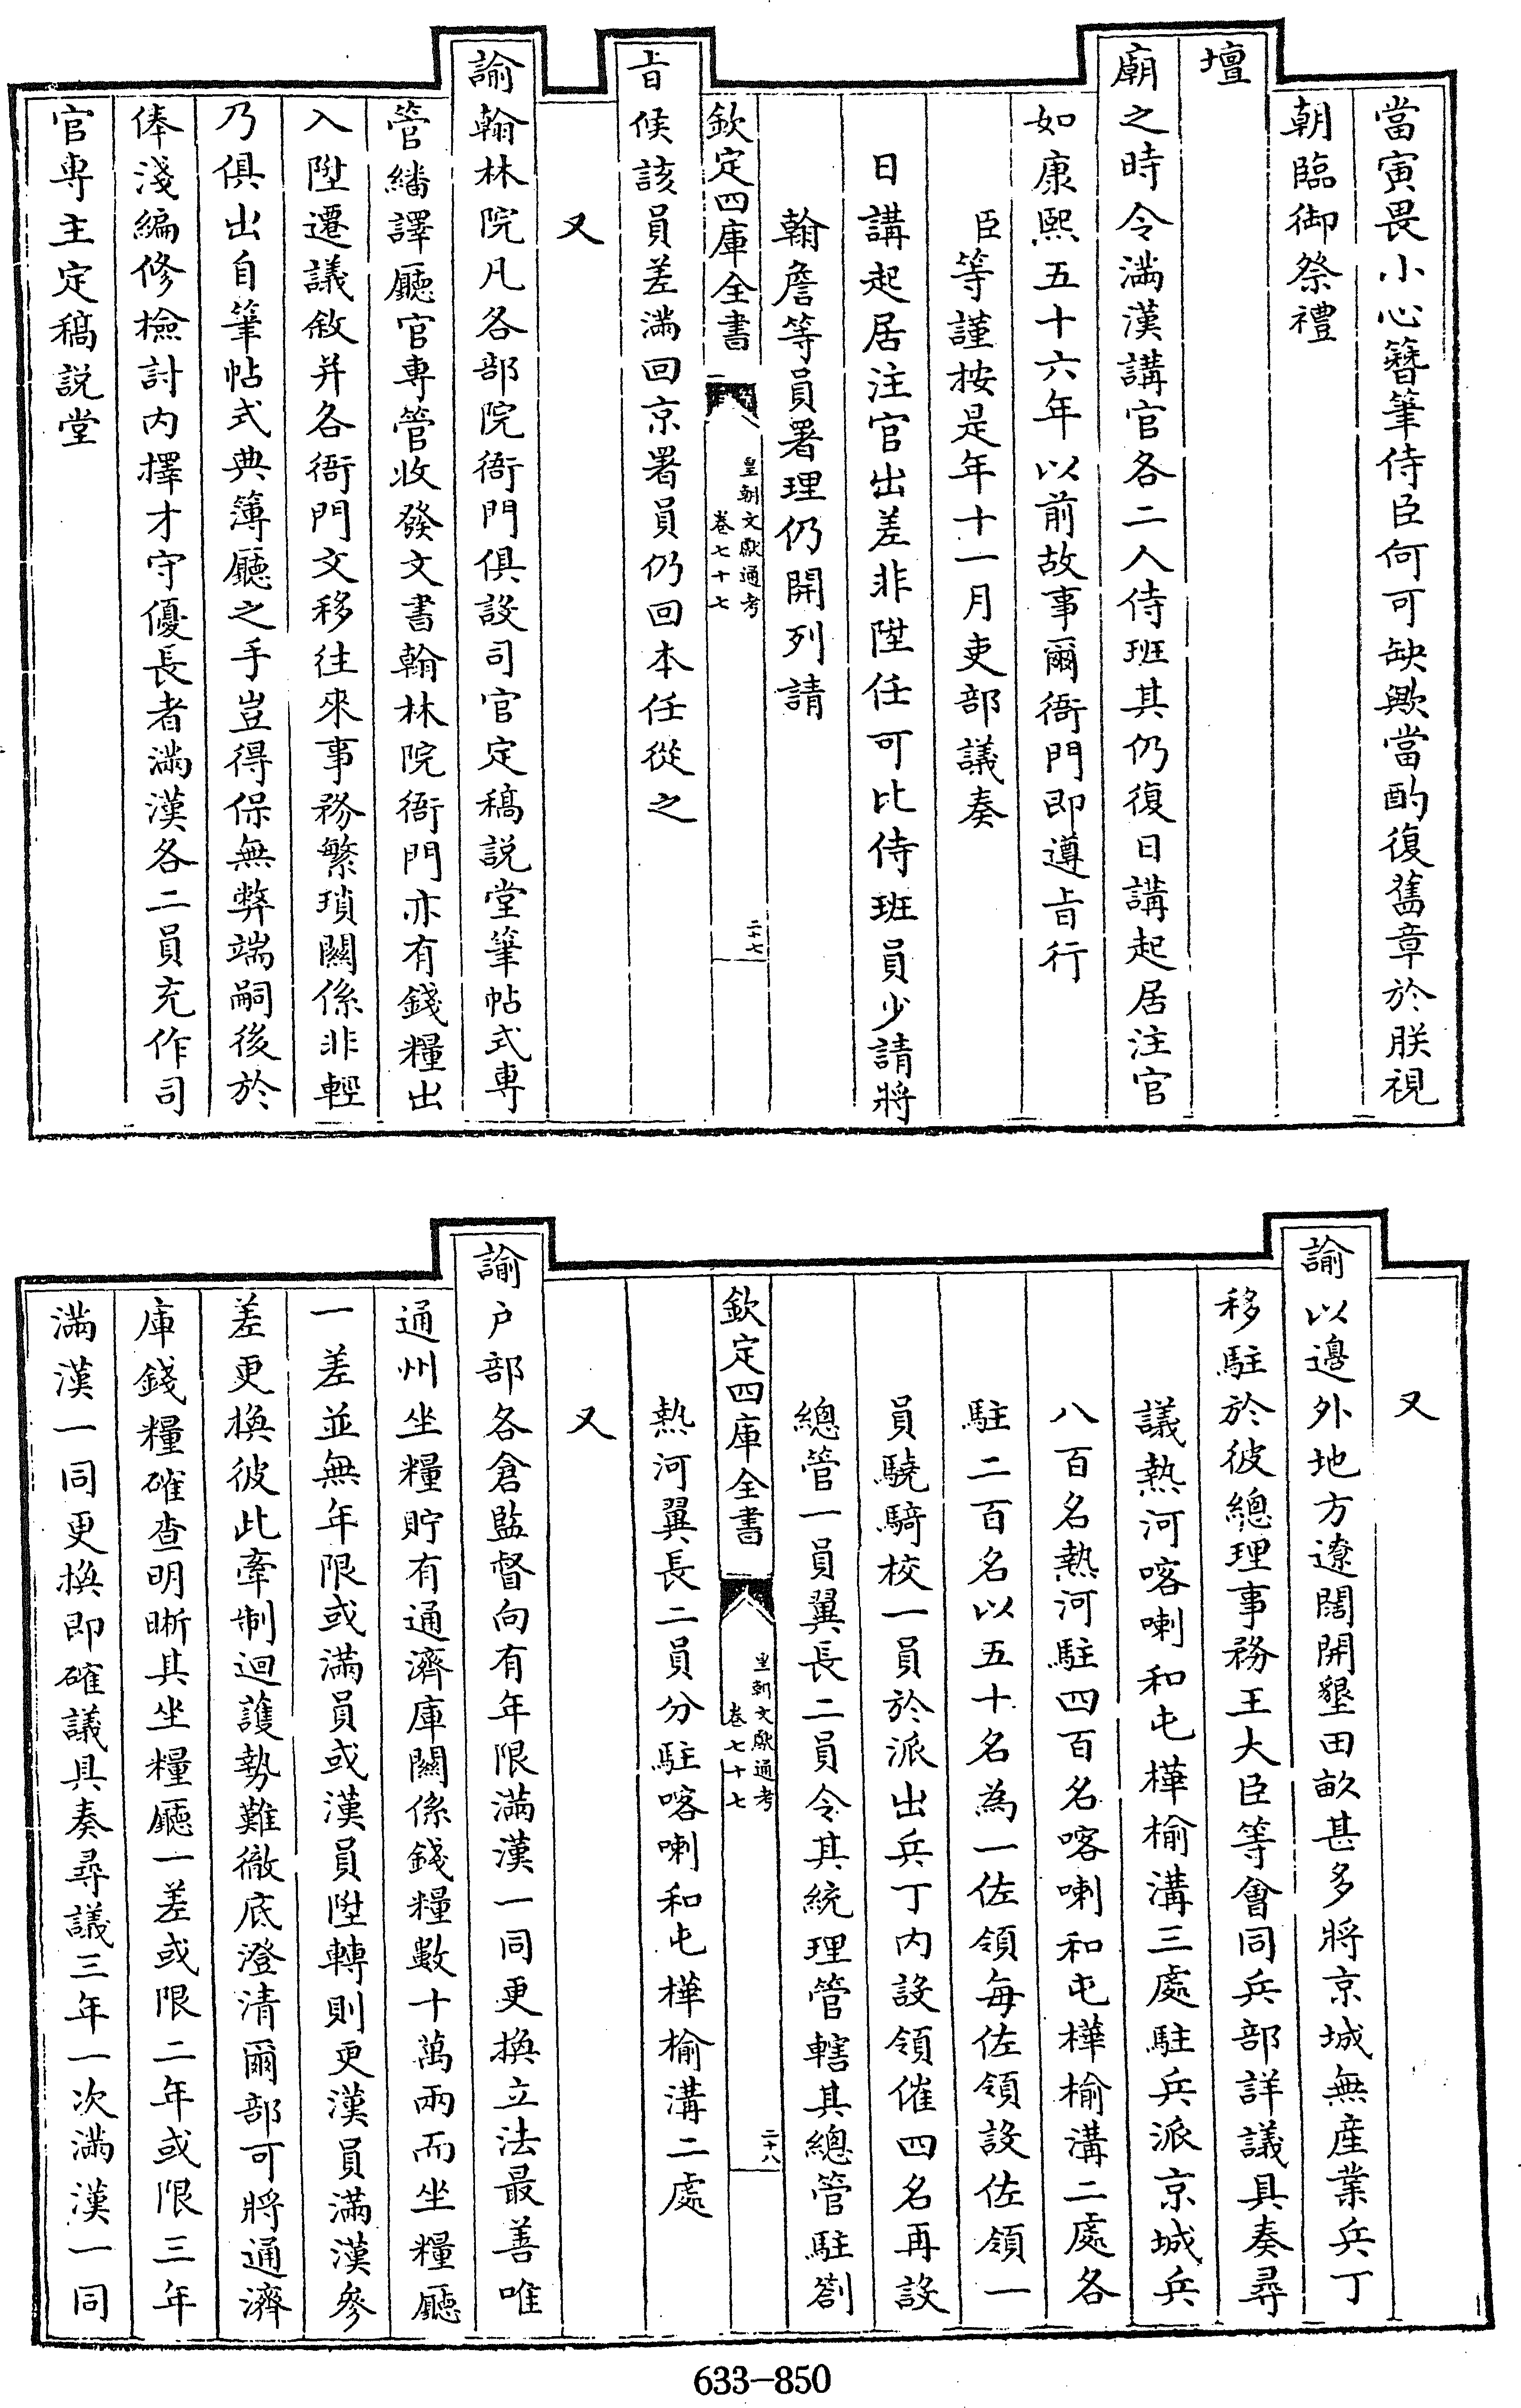 當寅畏小心簪筆侍臣何可缺歟當酌復舊章於朕視
朝臨御祭禮
壇
廟之時令滿漢講官各二人侍班其仍復日講起居注官
如康熙五十六年以前故事爾衙門即遵旨行
臣等謹按是年十一月吏部議奏
日講起居注官出差非陞任可比侍班員少請將
翰詹等員署理仍開列請
欽定四庫全書
皇朝文獻通考
卷七十七
二十七
旨候該員差滿回京署員仍回本任從之
又
諭翰林院凡各部院衙門俱設司官定稿説堂筆帖式專
管繙譯廳官專管收發文書翰林院衙門亦有錢糧出
入陞遷議敘并各衙門文移往來事務繁瑣關係非輕
乃俱出自筆帖式典簿廳之手豈得保無弊端嗣後於
俸淺編修檢討内擇才守優長者滿漢各二員充作司
官専主定稿説堂
又
諭以邊外地方遼闊開墾田畝甚多將京城無産業兵丁
移駐於彼總理事務王大臣等會同兵部詳議具奏尋
議熱河喀喇和屯樺榆溝三處駐兵派京城兵
八百名熱河駐四百名喀喇和屯樺榆溝二處各
駐二百名以五十名為一佐領每佐領設佐領一
員驍騎校一員於派出兵丁内設領催四名再設
總管一員翼長二員令其統理管轄其總管駐劄
欽定四庫全書
皇朝文獻通考
卷七十七
二十八
熱河翼長二員分駐喀喇和屯樺榆溝二處
又
諭户部各倉監督向有年限滿漢一同更換立法最善唯
通州坐糧貯有通濟庫關係錢糧數十萬兩而坐糧廳
一差並無年限或滿員或漢員陞轉則更漢員滿漢參
差更換彼此牽制迴護勢難徹底澄清爾部可將通濟
庫錢糧確查明晰其坐糧廳一差或限二年或限三年
滿漢一同更換即確議具奏尋議三年一次滿漢一同
633-850